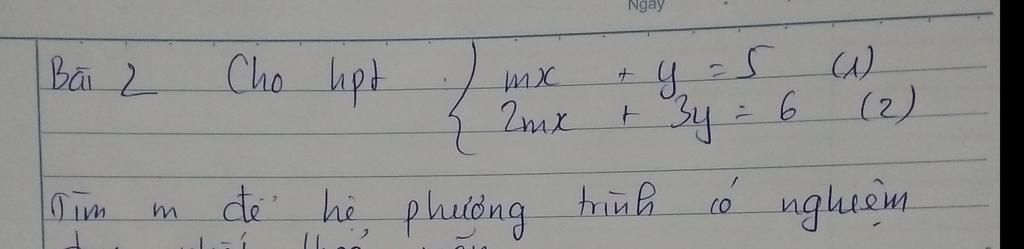 Ngày
Bài 2 Cho hpt { mx + y = 5 (1)
2mx + 3y = 6 (2)
Tìm m để hệ phương trình có nghiệm